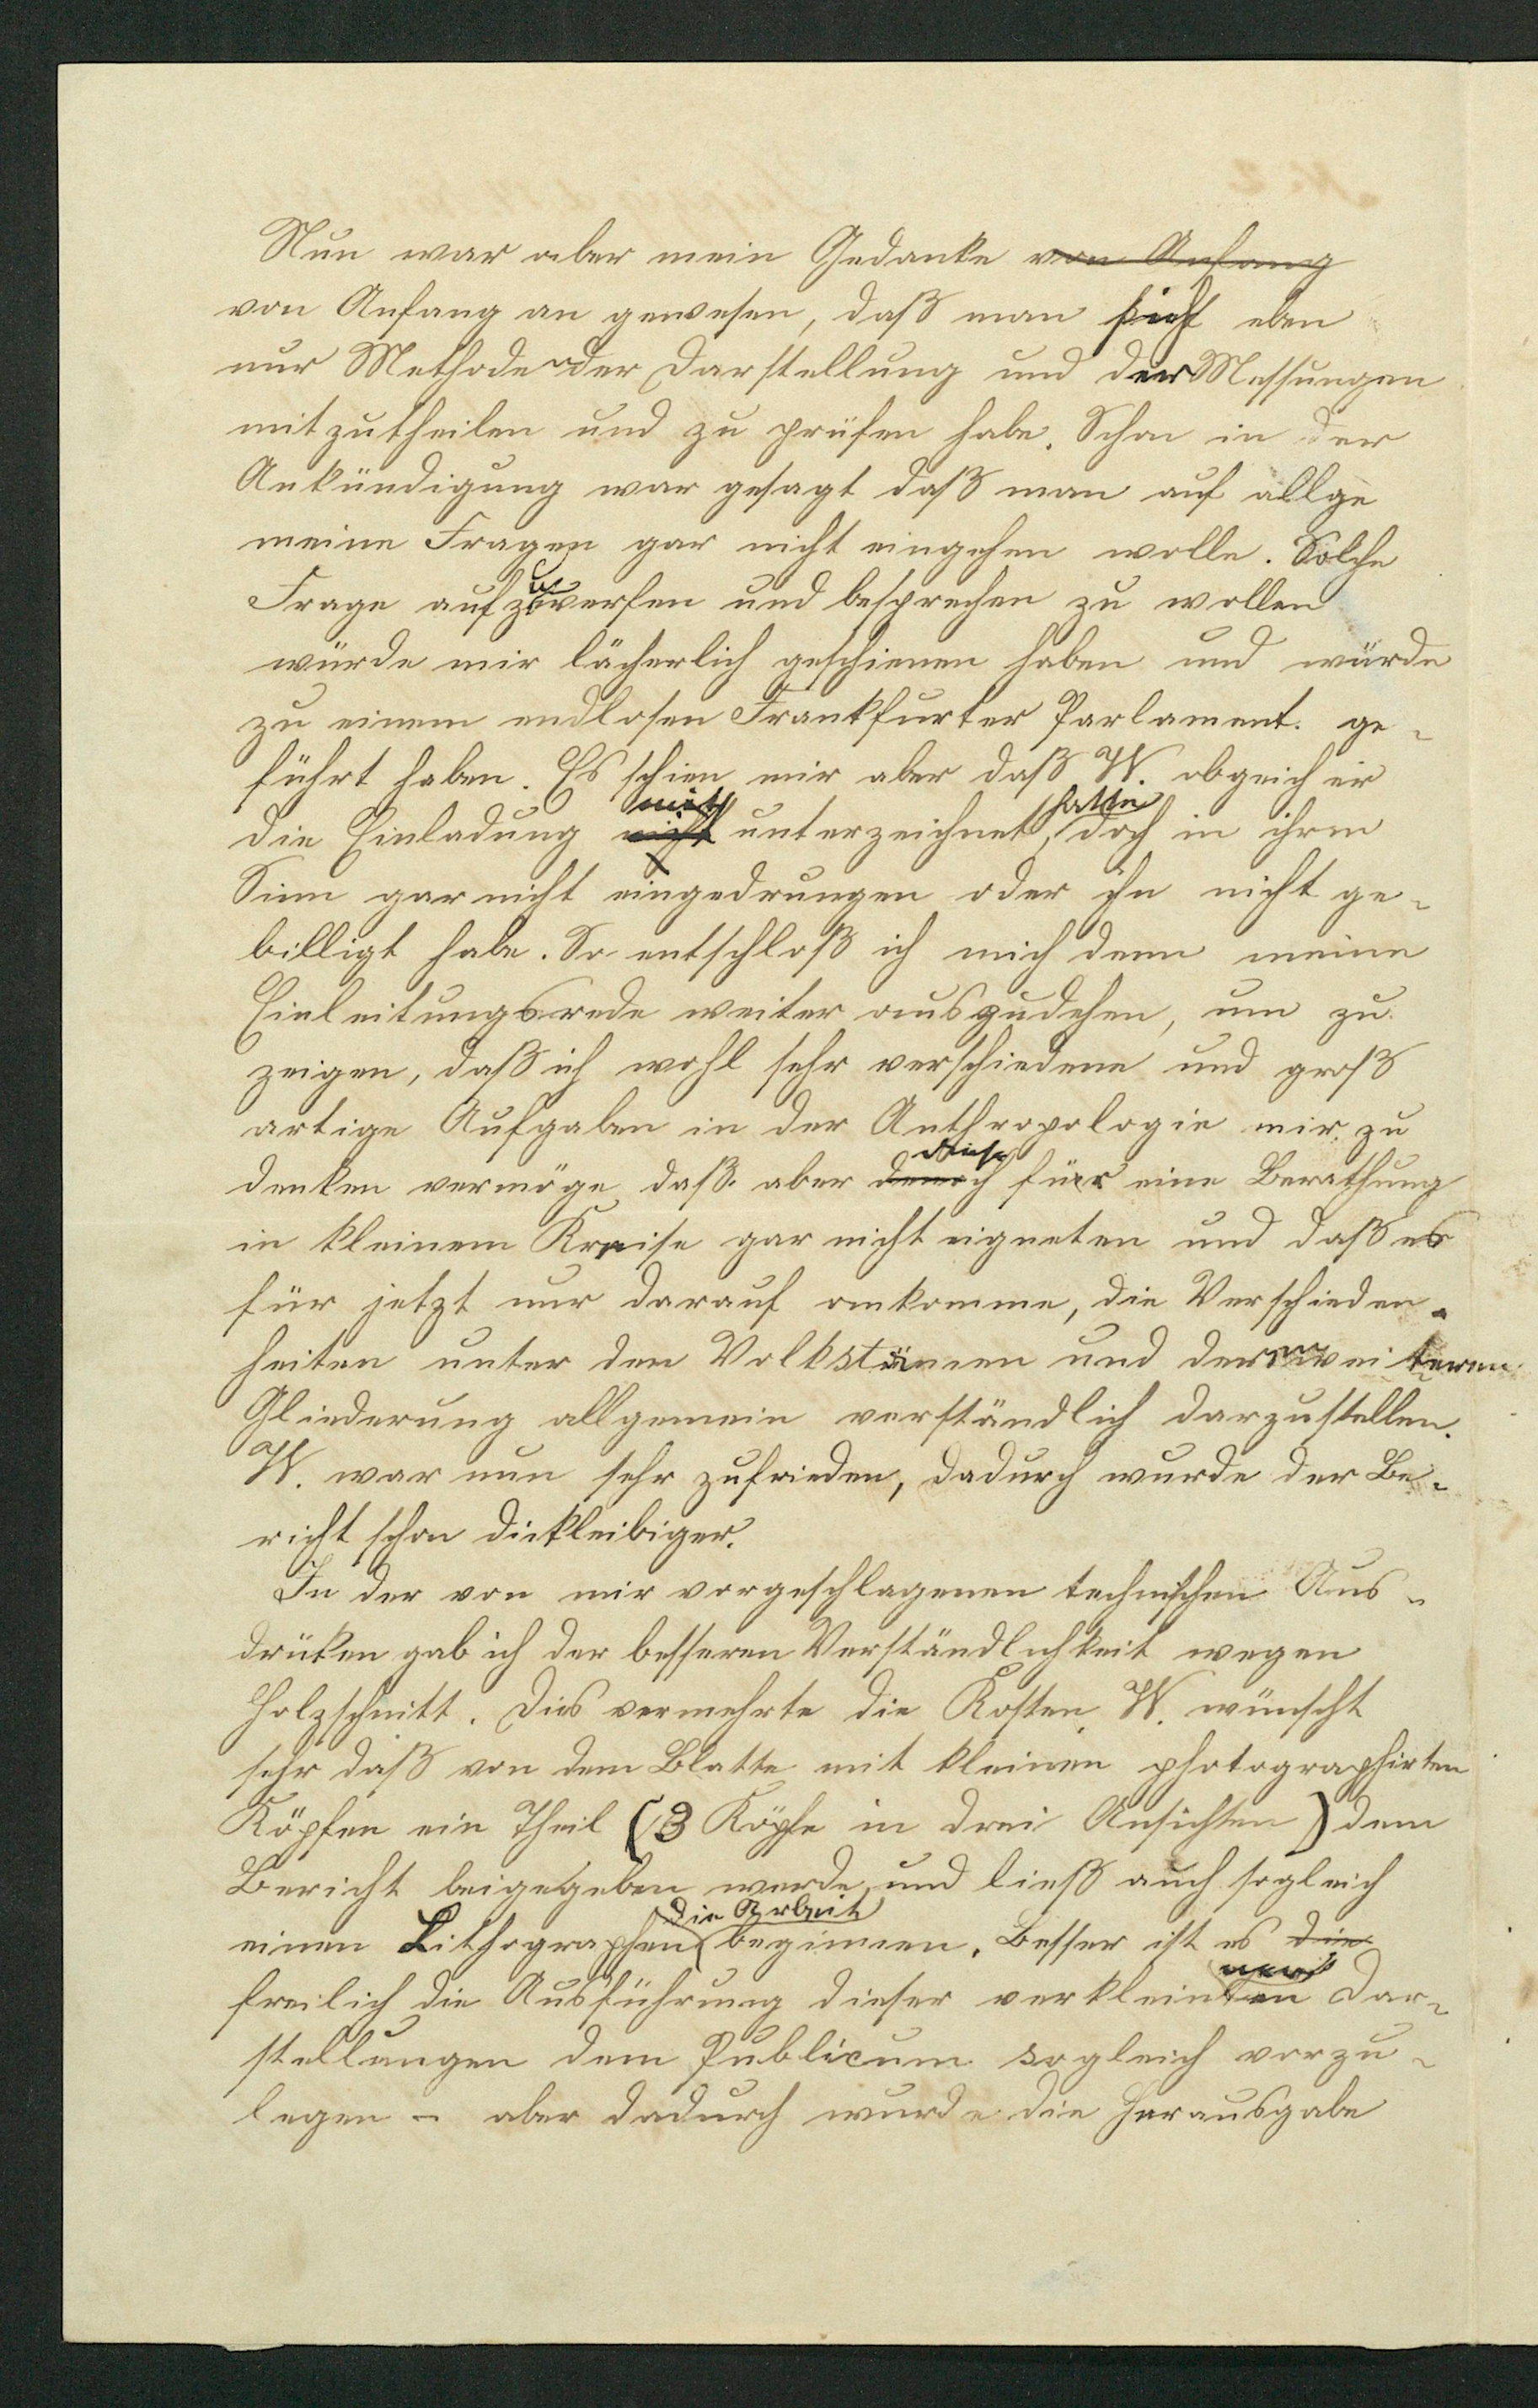 Nun war aber mein Gedanke von Anfang
von Anfang an gewesen, daß man sich eben
nur Methode der Darstellung und der Messungen
mitzutheilen und zu prüfen habe. Schon in der
Ankündigung war gesagt daß man auf allge
meine Fragen gar nicht eingehen wolle. Solche
Frage aufzuwerfen und besprechen zu wollen
würde mir lächerlich geschienen haben und würde
zu einem endlosen Frankfurter Parlament. ge-
führt haben. Es schien mir aber daß W. obgeich er
die Einladung nicht mit unterzeichnet hatte, doch in ihren
Sinn gar nicht eingedrungen oder ihn nicht ge-
billigt habe. So entschloß ich mich denn meine
Einleitungsrede weiter auszudehen, um zu
zeigen, daß ich wohl sehr verschiedene und groß
artige Aufgaben in der Anthropologie mir zu
denken vermöge, daß aber diese für eine Berathung
in kleinem Kreise gar nicht eigneten und daß es
für jetzt nur darauf ankomme, die Verschieden-
heiten unter den Volkstämen und deren weiteren
Gliederung allgemein verständlich darzustellen.
W. war nun sehr zufrieden, dadurch wurde der Be-
richt schon dickleibiger.
In der von mir vorgeschlagenen technischen Aus-
drüken gab ich der besseren Verständlichkeit wegen
Holzschnitt. Dies vermehrte die Kosten. W. wünscht
sehr daß von dem Blatte mit kleinen photographirten
Köpfen ein Theil (3 Köpfe in drei Ansichten) dem
Bericht beigegeben werde, und ließ auch sogleich
einen Lithographen die Arbeit beginnen. Besser ist es die
freilich die Ausführung dieser verkleinten Dar-
stellungen dem Publicum sogleich vorzu-
legen – aber dadurch wurde die Herausgabe